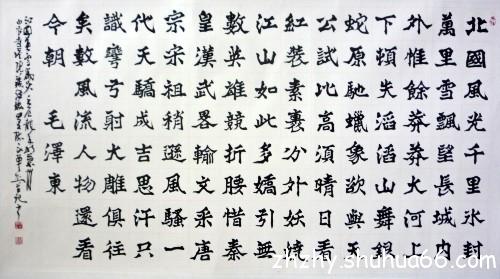 北國風光千里冰封
萬里雪飄望長城内
外惟餘莽莽大河上
下頓失滔滔山舞銀
蛇原馳蠟象欲與天
公試比高須晴日看
紅裝素裹分外妖嬈
江山如此多嬌引無
數英雄競折腰惜秦
皇漢武畧輸文采唐
宗宋祖稍遜風騷一
代天驕成吉思汗只
識彎弓射大雕俱往
矣數風流人物還看
今朝 毛澤東
zhzhy.shuhua66.com